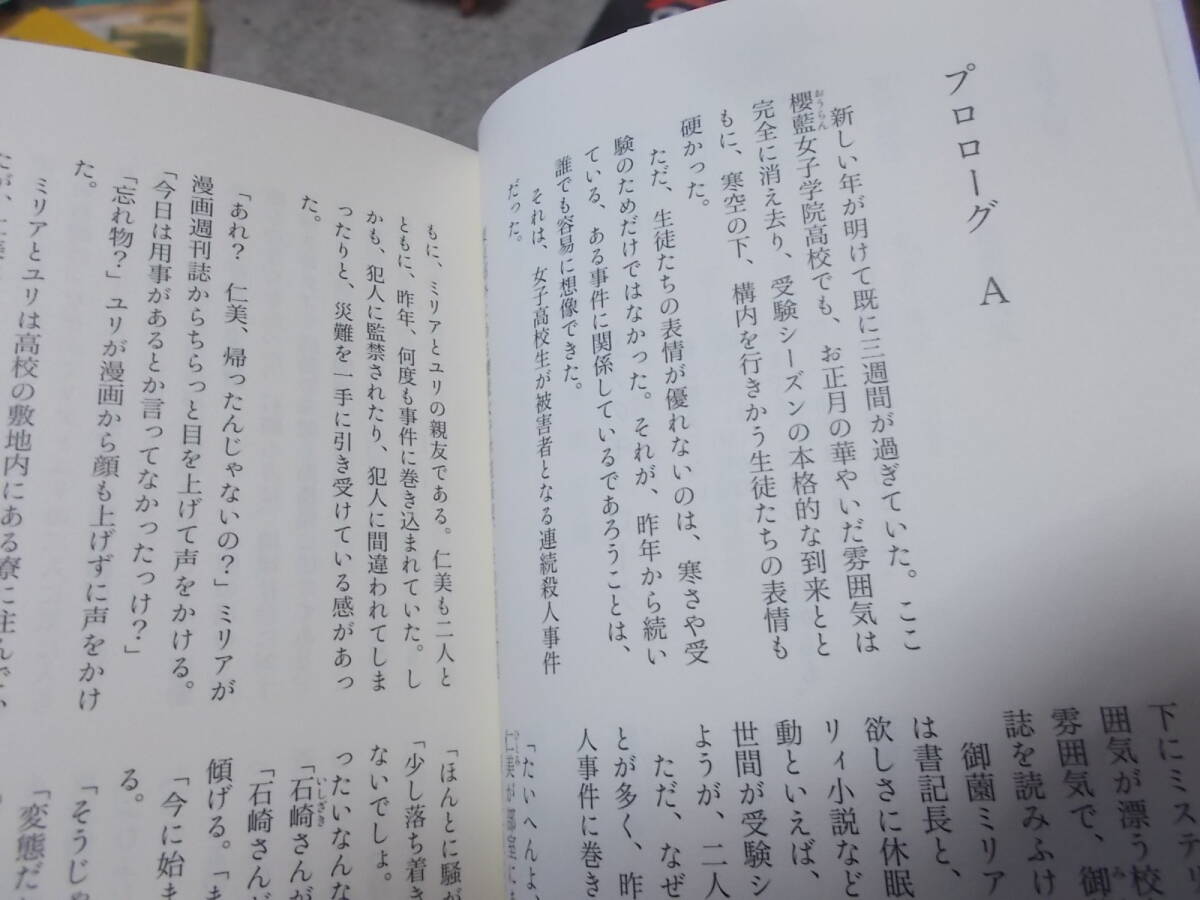 プロローグ A
新しい年が明けて既に三週間が過ぎていた。ここ
櫻藍女子学院高校でも、お正月の華やいだ雰囲気は
おうらん
完全に消え去り、受験シーズンの本格的な到来とと
もに、寒空の下、構内を行きかう生徒たちの表情も
硬かった。
ただ、生徒たちの表情が優れないのは、寒さや受
験のためだけではなかった。それが、昨年から続い
ている、ある事件に関係しているであろうことは、
誰でも容易に想像できた。
それは、女子高校生が被害者となる連続殺人事件
だった。
下にミステリ
囲気が漂う校
雰囲気で、御
み
誌を読みふけ
御薗ミリア
は書記長と、
欲しさに休眠
リィ小説など
動といえば、
世間が受験シ
ようが、二人
ただ、なぜ
とが多く、昨
人事件に巻き
「たいへんよ、
仁美が部室に
もに、ミリアとユリの親友である。仁美も二人と
ともに、昨年、何度も事件に巻き込まれていた。し
かも、犯人に監禁されたり、犯人に間違われてしま
ったりと、災難を一手に引き受けている感があっ
た。
「あれ? 仁美、帰ったんじゃないの?」ミリアが
漫画週刊誌からちらっと目を上げて声をかける。
「今日は用事があるとか言ってなかったっけ?」
「忘れ物?」ユリが漫画から顔も上げずに声をかけ
た。
ミリアとユリは高校の敷地内にある寮に住んで、
「ほんとに騒が
「少し落ち着き
ないでしょ。
ったいなんな
「石崎さんが
いしざき
「石崎さんど
傾げる。「ま
「今に始ま
る。
「そうじゃ
「変態だ